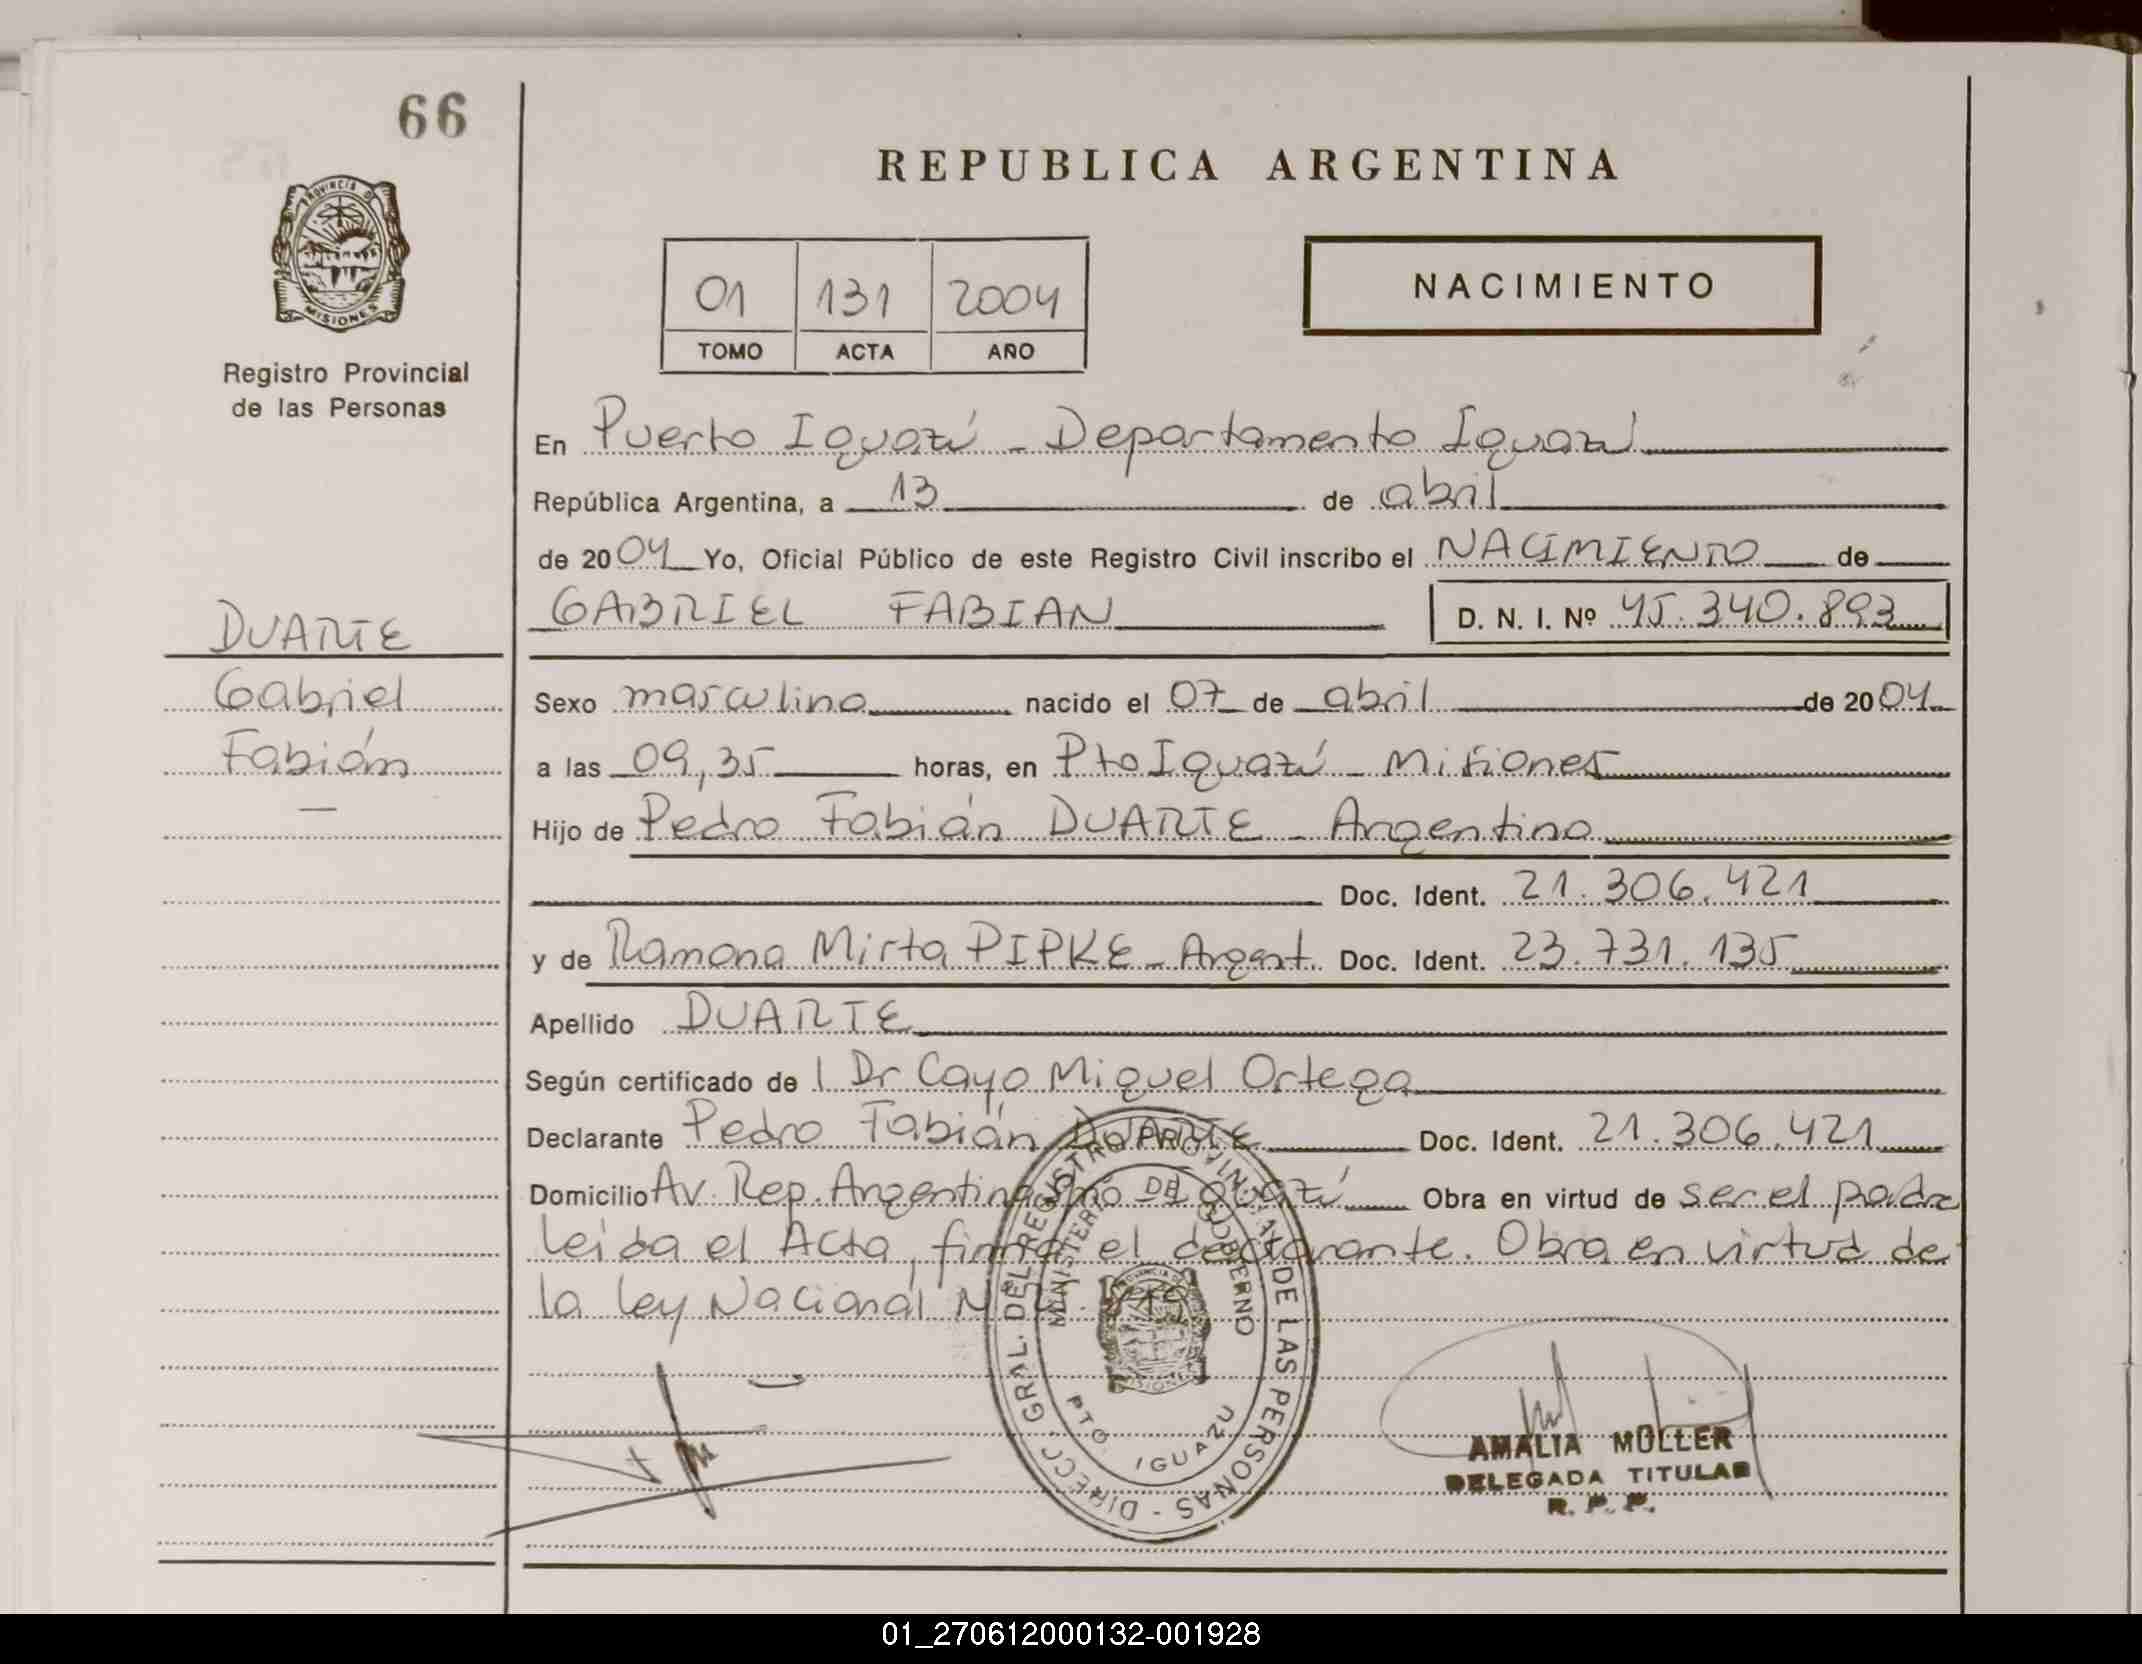 66
REPUBLICA ARGENTINA
PROVINCIA DE
MISIONES
Registro Provincial
de las Personas
01 131 2004
TOMO ACTA AÑO
NACIMIENTO
En Puerto Iguazú - Departamento Iguazú
República Argentina, a 13 de abril
de 2004 Yo, Oficial Público de este Registro Civil inscribo el NACIMIENTO de
GABRIEL FABIAN D. N. I. Nº 45.340.893
DUARTE
Gabriel
Fabián
Sexo masculino nacido el 07 de abril de 2004
a las 09,35 horas, en Pto Iguazú - Misiones
Hijo de Pedro Fabián DUARTE - Argentino
Doc. Ident. 21.306.421
y de Ramona Mirta PIPKE - Argent. Doc. Ident. 23.731.135
Apellido DUARTE
Según certificado de l Dr Cayo Miguel Ortega
Declarante Pedro Fabián DUARTE Doc. Ident. 21.306.421
Domicilio Av. Rep. Argentina Iguazú Obra en virtud de ser el padre
leida el Acta, firma el declarante. Obra en virtud de
la ley Nacional Nº
DIRECC. GRAL. DEL REGISTRO PROVINCIAL DE LAS PERSONAS -
MINISTERIO DE GOBIERNO
PTO. IGUAZU
AMALIA MULLER
DELEGADA TITULAR
R. P. P.
01_270612000132-001928